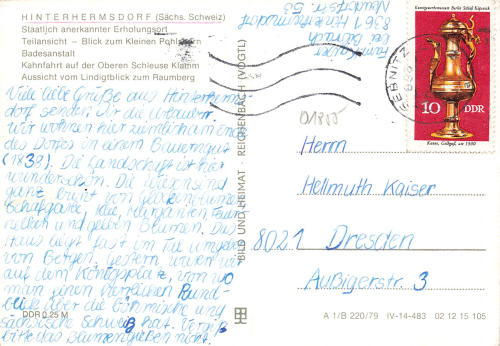 HINTERHERMSDORF (Sächs. Schweiz)
Staatlich anerkannter Erholungsort
Teilansicht – Blick zum Kleinen Pohlshorn
Badesanstalt
Kahnfahrt auf der Oberen Schleuse Klamm
Aussicht vom Lindigtblick zum Raumberg
Viele liebe Grüße aus Hinterherms-
dorf senden Dir die Urlauber.
Wir wohnen hier ziemlich am Ende
des Dorfes in einem Bauerngut
(1838). Die Landschaft ist hier
wunderschön. Die Wiesen sind
ganz bunt von Glockenblumen
Schafgarbe, die
und gelben Blumen. Das
Haus liegt fast im Tal umgeben
von Bergen. Gestern waren wir
auf dem Königsplatz, von wo
man einen herrlichen Rund-
blick über die Böhmische und
Sächsische Schweiz hat. Vergiß
bitte das Blumengießen nicht.
DDR 0,25 M
BILD UND HEIMAT · REICHENBACH (VOGTL)
8361 Hinterhermsdorf
SEBNITZ
836
Kunstgewerbemuseum Berlin Schloß Köpenick
10 DDR
Kanne, Goldgef., um 1500
Herrn
Hellmuth Kaiser
8021 Dresden
Außigerstr. 3
A 1/B 220/79 IV-14-483 02 12 15 105